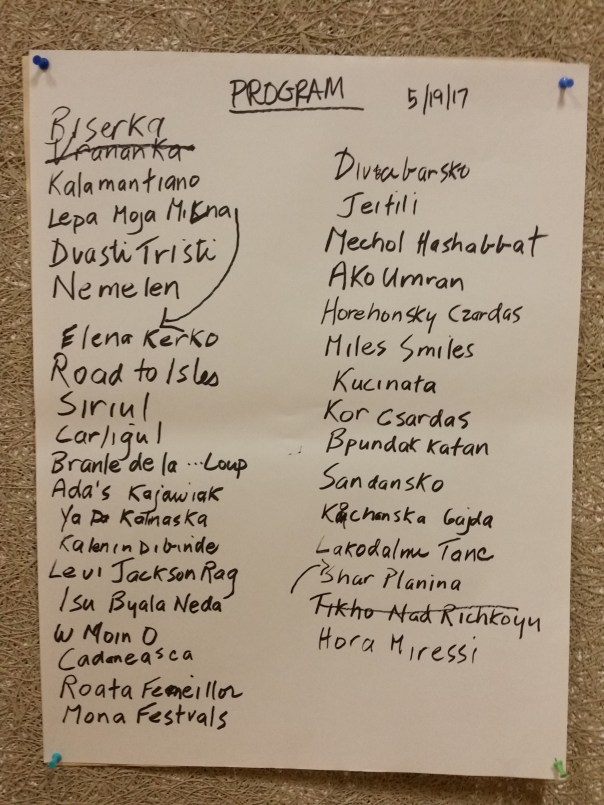 PROGRAM
5/19/17
Biserka
Vrananka
Kalamantiano
Lepa Moja Milkna
Dvasti Tristi
Nemelen
Elena Kerko
Road to Isles
Siriul
Carligul
Branle de la ... Loup
Ada's Kajawiak
Ya Da Kalinaska
Kalenin Dibinde
Levi Jackson Rag
Isu Byala Neda
W Moin O
Cadaneasca
Roata Femeillor
Mona Festvals
Divtabarsko
Jeitili
Mechol Hashabbat
Ako Umran
Horehonsky Czardas
Miles Smiles
Kucinata
Kor Csardas
Bpundak Katan
Sandansko
Kachanska Gajda
Lakodalmu Tanc
Shar Planina
Tikho Nad Richkoyu
Hora Miressi